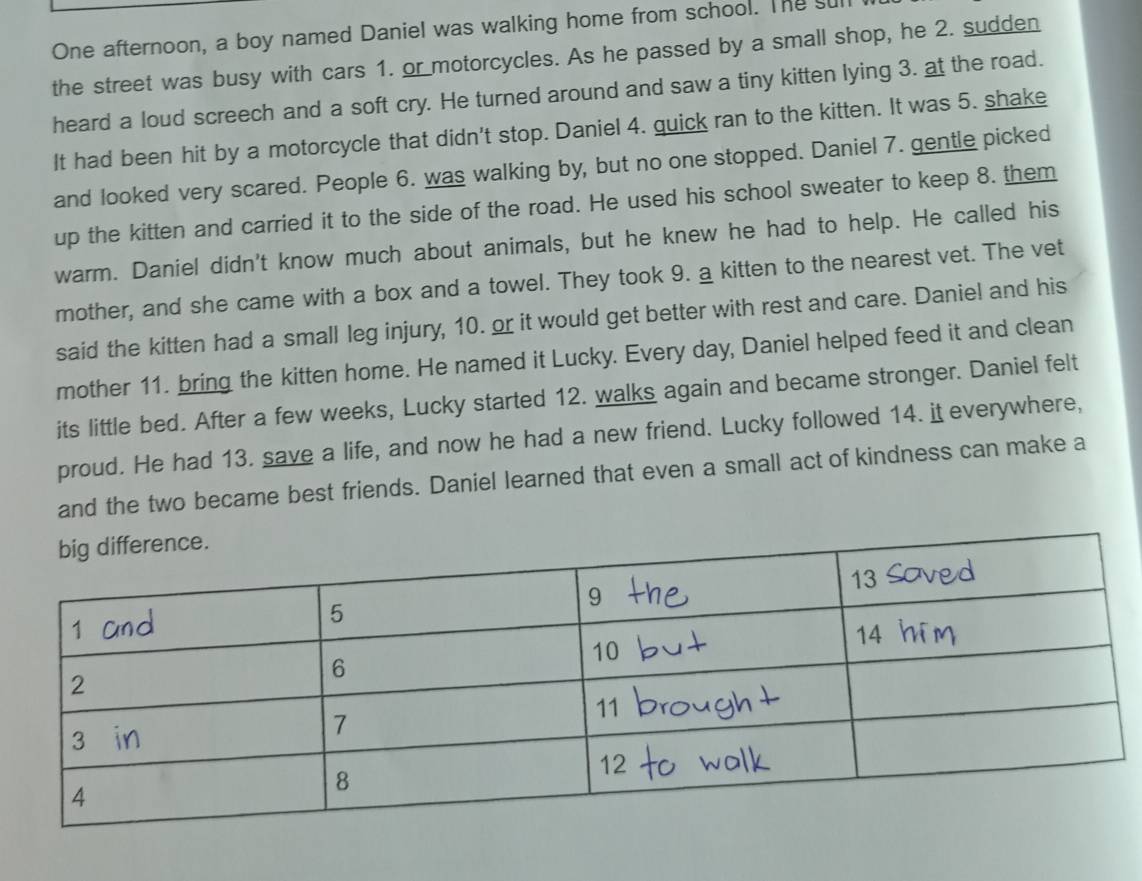 One afternoon, a boy named Daniel was walking home from school. The sun
the street was busy with cars 1. or motorcycles. As he passed by a small shop, he 2. sudden
heard a loud screech and a soft cry. He turned around and saw a tiny kitten lying 3. at the road.
It had been hit by a motorcycle that didn't stop. Daniel 4. quick ran to the kitten. It was 5. shake
and looked very scared. People 6. was walking by, but no one stopped. Daniel 7. gentle picked
up the kitten and carried it to the side of the road. He used his school sweater to keep 8. them
warm. Daniel didn't know much about animals, but he knew he had to help. He called his
mother, and she came with a box and a towel. They took 9. a kitten to the nearest vet. The vet
said the kitten had a small leg injury, 10. or it would get better with rest and care. Daniel and his
mother 11. bring the kitten home. He named it Lucky. Every day, Daniel helped feed it and clean
its little bed. After a few weeks, Lucky started 12. walks again and became stronger. Daniel felt
proud. He had 13. save a life, and now he had a new friend. Lucky followed 14. it everywhere,
and the two became best friends. Daniel learned that even a small act of kindness can make a
big difference.
1 and 5 9 the 13 saved
2 6 10 but 14 him
3 in 7 11 brought
4 8 12 to walk